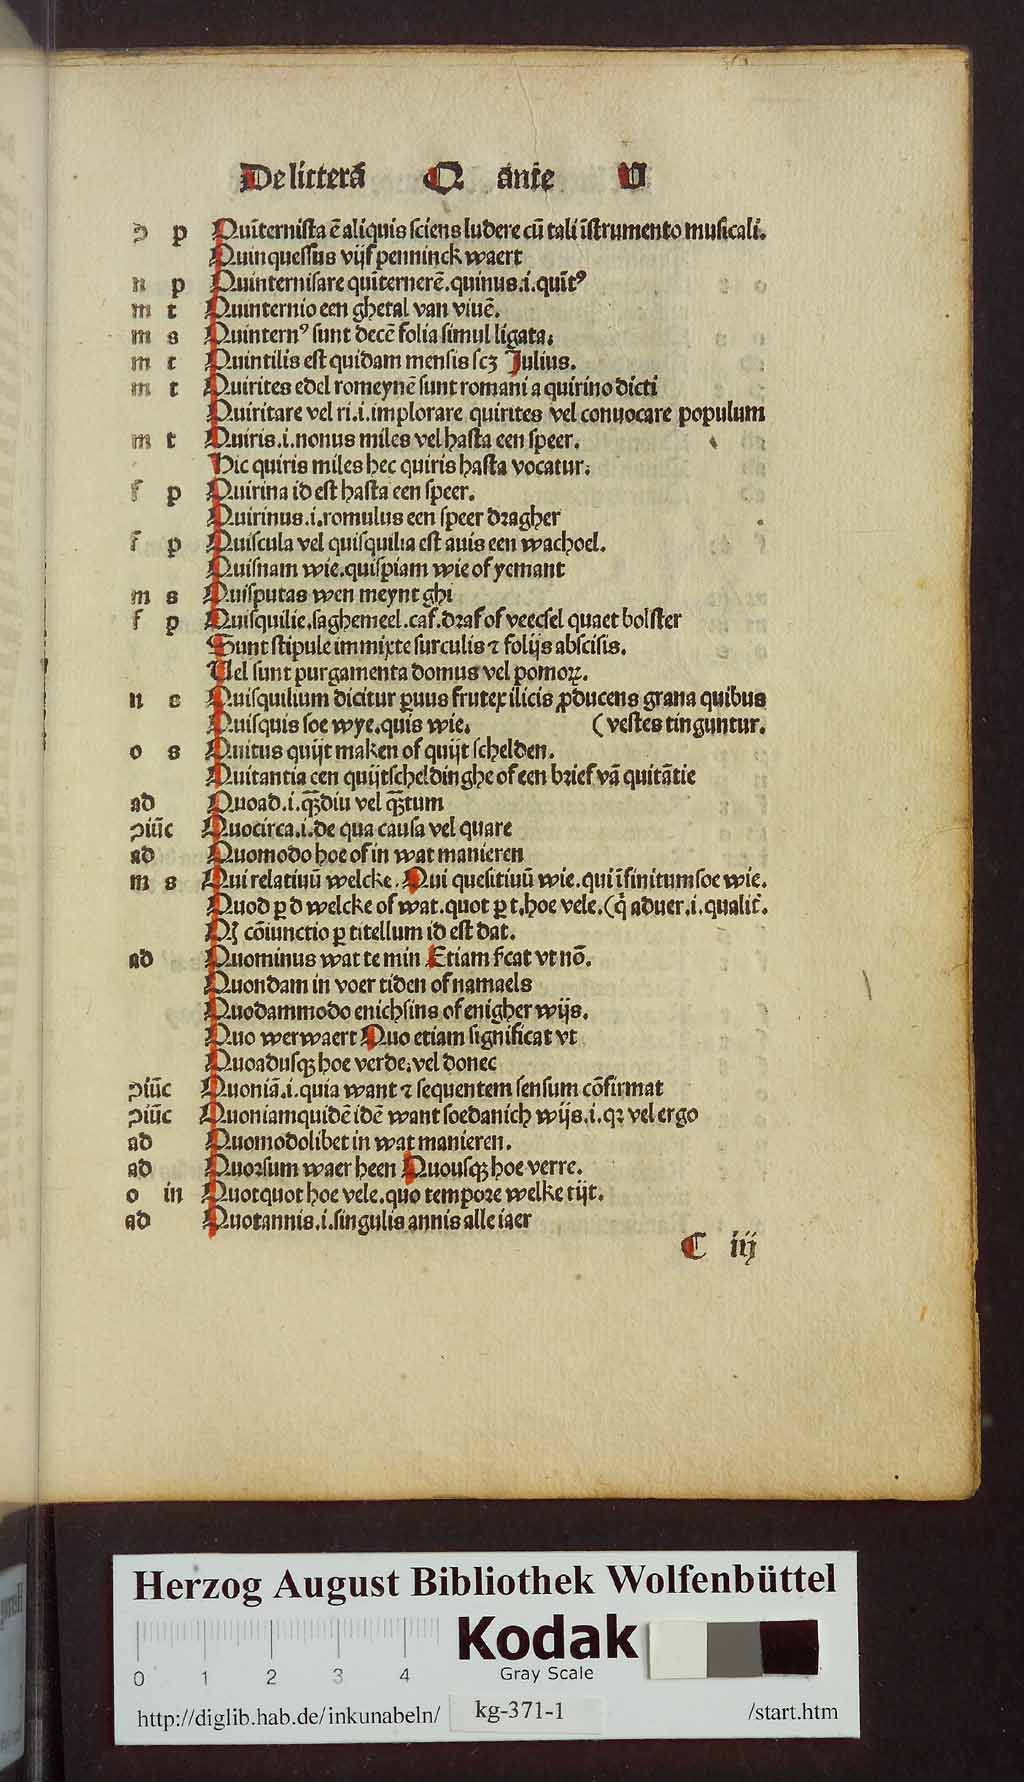 De litterā Q ante U
ꝯ p Quīternista ē aliquis sciens ludere cū tali īstrumento musicali.
Quinquessus vijf penninck waert
n p Quinternisare quīternerē. quinus .i. quīt⁹
m t Quinternio een ghetal van viuē.
m s Quintern⁹ sunt decē folia simul ligata.
m t Quintilis est quidam mensis scꝫ Julius.
m t Quirites edel romeynē sunt romani a quirino dicti
Quiritare vel ri .i. implorare quirites vel conuocare populum
m t Quiris .i. nonus miles vel hasta een speer.
Hic quiris miles hec quiris hasta vocatur.
f p Quirina id est hasta een speer.
Quirinus .i. romulus een speer dragher
f p Quiscula vel quisquilia est auis een wachoel.
Quisnam wie. quispiam wie of yemant
m s Quisputas wen meynt ghi
f p Quisquilie. saghemeel. caf. draf of veecsel quaet bolster
Sunt stipule immixte surculis ⁊ folijs abscisis.
Uel sunt purgamenta domus vel pomoꝝ.
n s Quisquilium dicitur ꝑuus frutex ilicis ꝓducens grana quibus
Quisquis soe wye. quis wie. (vestes tinguntur.
o s Quitus quijt maken of quijt schelden.
Quitantia een quijtscheldinghe of een brief vā quitātie
ad Quoad .i. qꝫdiu vel qꝫtum
ↄiūc Quocirca .i. de qua causa vel quare
ad Quomodo hoe of in wat manieren
m s Qui relatiuū welcke. Qui quesitiuū wie. qui īfinitum soe wie.
Quod ꝑ d welcke of wat. quot ꝑ t. hoe vele. (q̄ aduer .i. qualit̄.
Qꝫ cōiunctio ꝑ titellum id est dat.
ad Quominus wat te min Etiam sͥcat vt nō.
Quondam in voer tiden of namaels
Quodammodo enichsins of enigher wijs.
Quo werwaert Quo etiam significat vt
Quoadusqꝫ hoe verde. vel donec
ↄiūc Quoniā .i. quia want ⁊ sequentem sensum cōfirmat
ↄiūc Quoniamquidē idē want soedanich wijs .i. qꝛ vel ergo
ad Quomodolibet in wat manieren.
ad Quorsum waer heen Quousqꝫ hoe verre.
o in Quotquot hoe vele. quo tempore welke tijt.
ad Quotannis .i. singulis annis alle iaer
C iij
Herzog August Bibliothek Wolfenbüttel
Kodak
Gray Scale
0 1 2 3 4
http://diglib.hab.de/inkunabeln/ kg-371-1 /start.htm